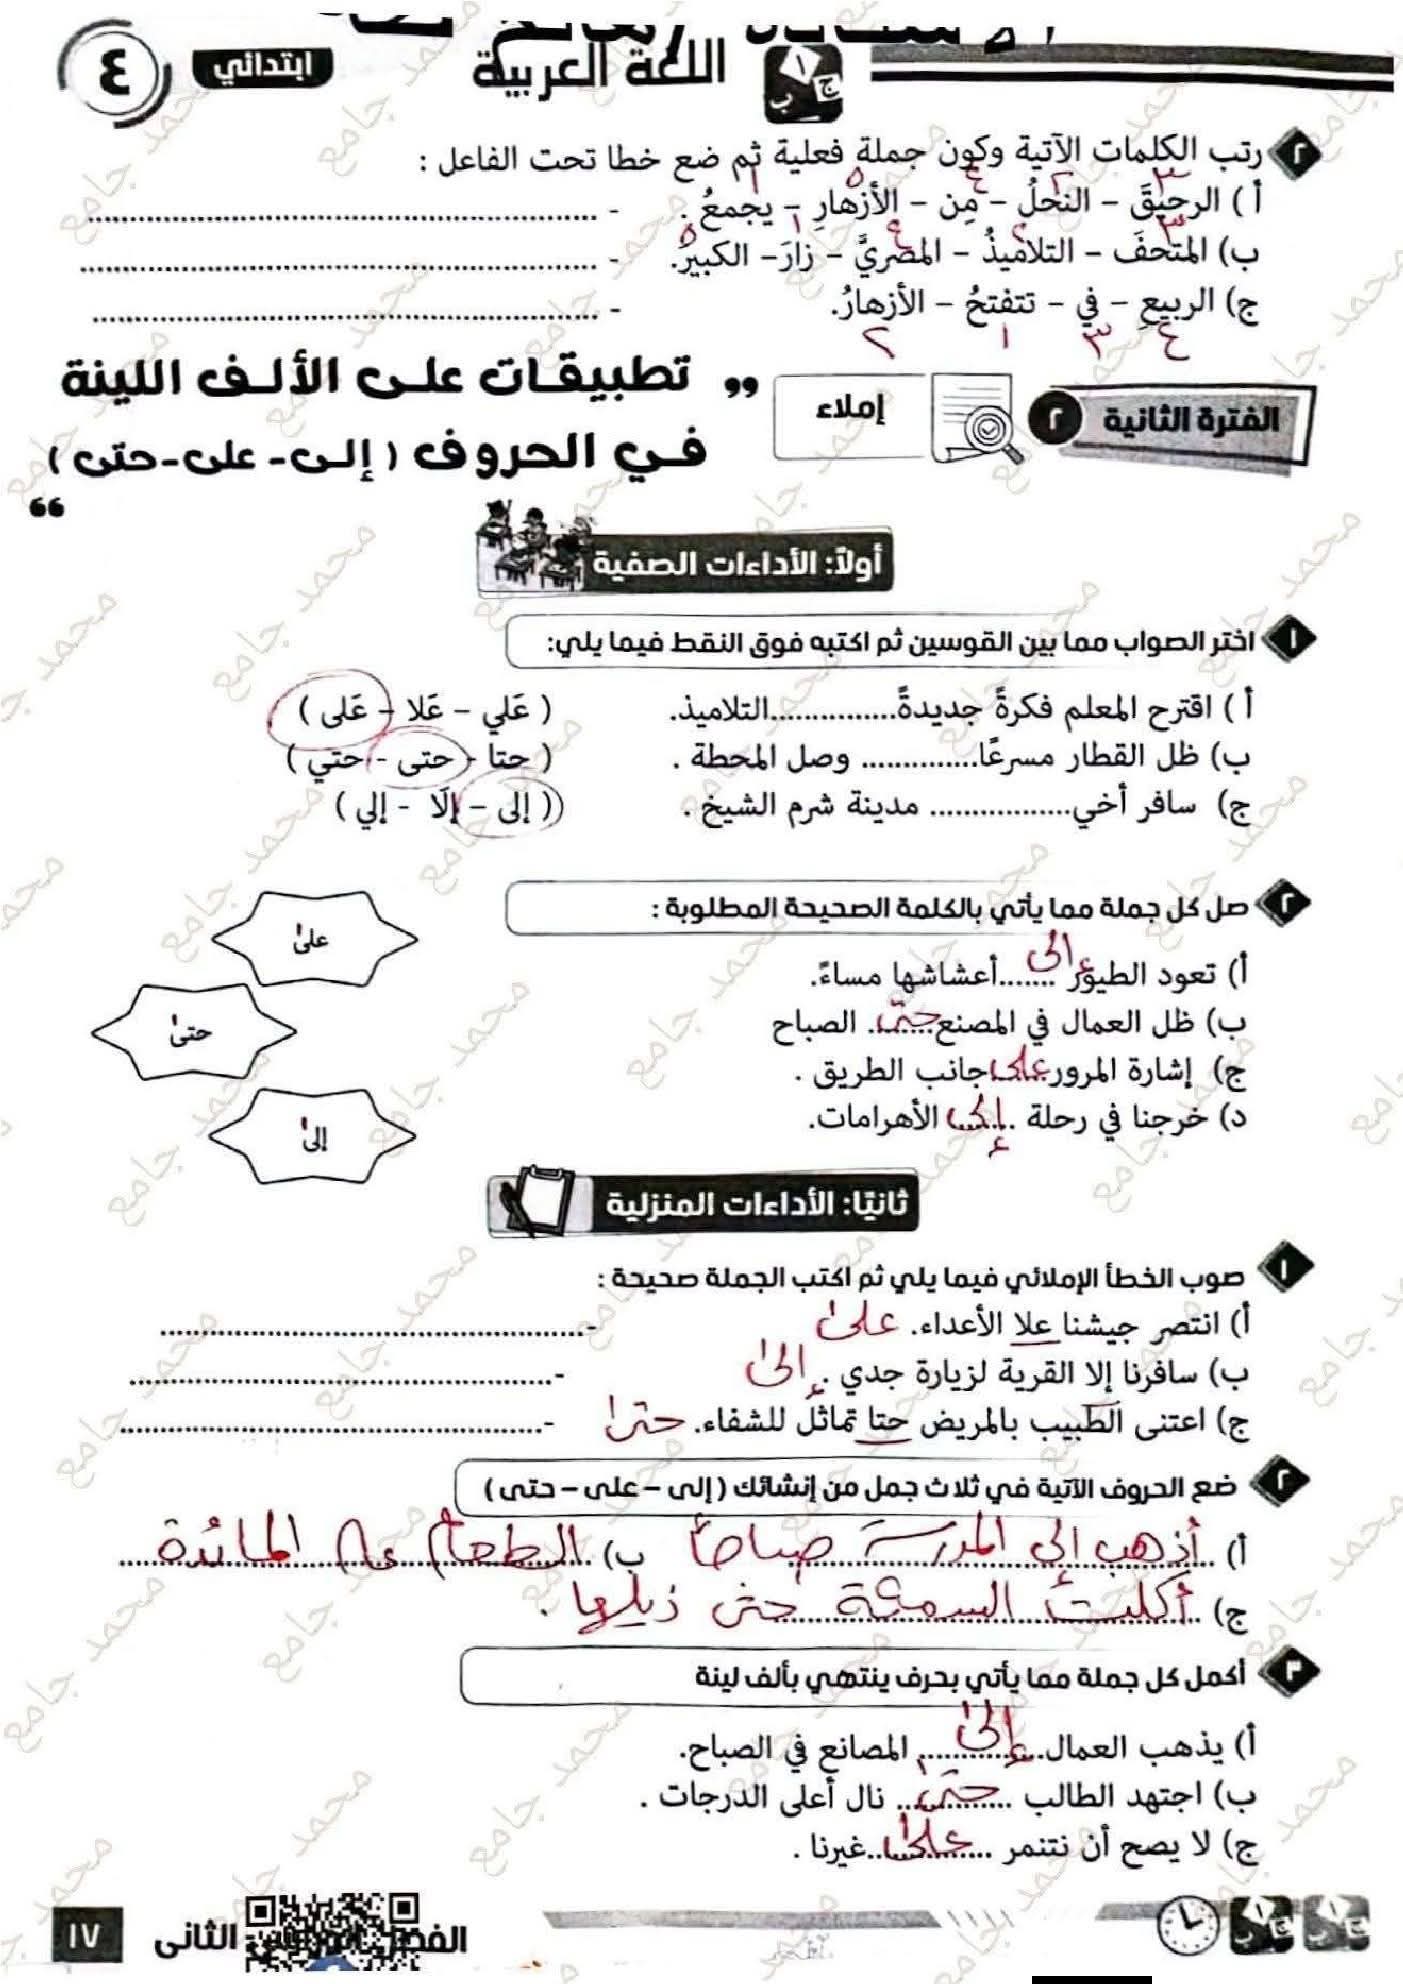 اللغة العربية
ابتدائي
٤
٢ رتب الكلمات الآتية وكون جملة فعلية ثم ضع خطا تحت الفاعل :
٣ ٢ ٤ ٥ ١
أ ) الرحيقَ – النحلُ – مِن – الأزهارِ – يجمعُ . - ........................
٣ ٢ ٤ ١ ٥
ب) المتحفَ – التلاميذُ – المصريَّ – زارَ – الكبيرَ. - ........................
ج) الربيعِ – في – تتفتحُ – الأزهارُ. - ........................
٤ ٣ ١ ٢
الفترة الثانية ٢
إملاء
" تطبيقات على الألف اللينة
في الحروف ( إلى - على - حتى ) "
أولًا: الأداءات الصفية
١ اختر الصواب مما بين القوسين ثم اكتبه فوق النقط فيما يلي:
أ ) اقترح المعلم فكرةً جديدةً...............التلاميذ. ( عَلي – عَلا – عَلى )
ب) ظل القطار مسرعًا.............. وصل المحطة . ( حتا - حتى - حتي )
ج) سافر أخي................. مدينة شرم الشيخ . ( إلى – إلَا - إلي )
٢ صل كل جملة مما يأتي بالكلمة الصحيحة المطلوبة :
أ) تعود الطيور إلى أعشاشها مساءً.
ب) ظل العمال في المصنع حتى الصباح
ج) إشارة المرور على جانب الطريق .
د) خرجنا في رحلة إلى الأهرامات.
على
حتى
إلى
ثانيًا: الأداءات المنزلية
١ صوب الخطأ الإملائي فيما يلي ثم اكتب الجملة صحيحة :
أ) انتصر جيشنا علا الأعداء. على - ........................
ب) سافرنا إلا القرية لزيارة جدي . إلى - ........................
ج) اعتنى الطبيب بالمريض حتا تماثل للشفاء. حتى - ........................
٢ ضع الحروف الآتية في ثلاث جمل من إنشائك ( إلى – على – حتى )
أ) أذهب إلى المدرسة صباحًا ب) الطعام المائدة
ج) أكلت السمكة حتى ذيلها .
٣ أكمل كل جملة مما يأتي بحرف ينتهي بألف لينة
أ) يذهب العمال إلى المصانع في الصباح.
ب) اجتهد الطالب حتى نال أعلى الدرجات .
ج) لا يصح أن نتنمر على غيرنا .
الثانى
١٧
محمد جامع